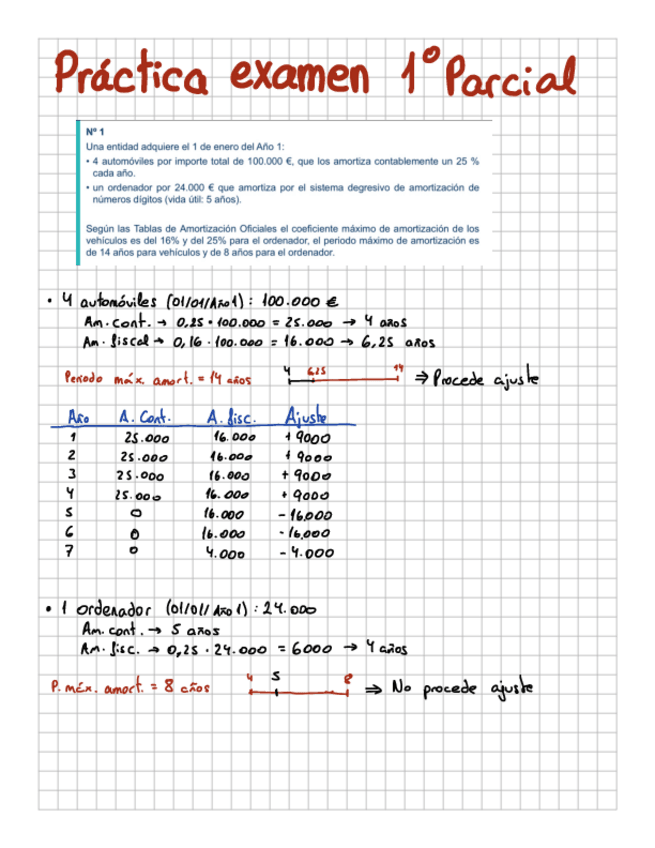 Práctica examen 1º Parcial
Nº 1
Una entidad adquiere el 1 de enero del Año 1:
• 4 automóviles por importe total de 100.000 €, que los amortiza contablemente un 25 %
cada año.
• un ordenador por 24.000 € que amortiza por el sistema degresivo de amortización de
números dígitos (vida útil: 5 años).
Según las Tablas de Amortización Oficiales el coeficiente máximo de amortización de los
vehículos es del 16% y del 25% para el ordenador, el periodo máximo de amortización es
de 14 años para vehículos y de 8 años para el ordenador.
• 4 automóviles (01/01/Año1) : 100.000 €
Am. cont. → 0,25 · 100.000 = 25.000 → 4 años
Am. fiscal → 0,16 · 100.000 = 16.000 → 6,25 años
Periodo máx. amort. = 14 años 4 6,25 14 ⇒ Procede ajuste
Año A. Cont. A. fisc. Ajuste
1 25.000 16.000 + 9000
2 25.000 16.000 + 9000
3 25.000 16.000 + 9000
4 25.000 16.000 + 9000
5 0 16.000 - 16.000
6 0 16.000 - 16.000
7 0 4.000 - 4.000
• 1 ordenador (01/01/Año1) : 24.000
Am. cont. → 5 años
Am. fisc. → 0,25 · 24.000 = 6000 → 4 años
P. máx. amort. = 8 años 4 5 8 ⇒ No procede ajuste